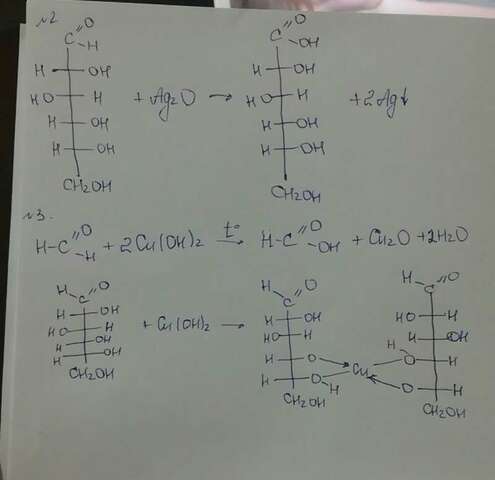 №2
C =O H
C =O OH
H OH
HO H + Ag2O → HO H + 2Ag↓
H OH
H OH
CH2OH
H OH
H OH
H OH
CH2OH
№3.
H-C =O -H + 2Cu(OH)2 t° → H-C =O -OH + Cu2O + 2H2O
H C =O
H OH
HO H
H OH
H OH
CH2OH
+ Cu(OH)2 →
H C =O
H OH
HO H
H O
H O H
CH2OH
Cu
H C =O
HO H
H OH
H O H
O H
CH2OH